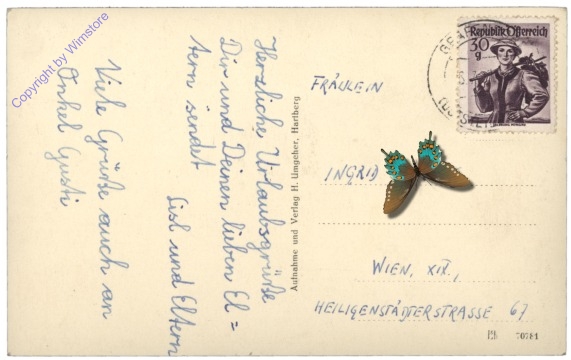 Herzliche Urlaubsgrüße
Dir und Deinen lieben El=
tern sendet
Lisl und Eltern
Viele Grüße auch an
Onkel Gusti
Aufnahme und Verlag H. Umgeher, Hartberg
FRÄULEIN
INGRID
WIEN, XIX.,
HEILIGENSTÄDTERSTRASSE 67
Republik Österreich
30
g
70781
Copyright by Wimstore